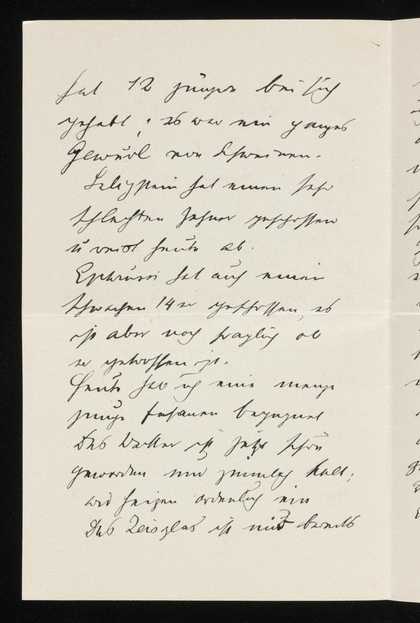 hat 12 junge bei sich
gehabt; es war ein ganzes
Gewurl von Schweinen.
hat einen sehr
schlechten Zehner geschossen
u. reist heute ab.
Ephrussi hat auch einen
schwachen 14er geschossen, es
ist aber noch fraglich ob
er getroffen ist.
Heute hab ich eine menge
junge Fasanen begegnet
Das Wetter ist jetzt schön
geworden und ziemlich kalt;
wir heizen ordentlich ein
Das Zeissglas ist mir bereits